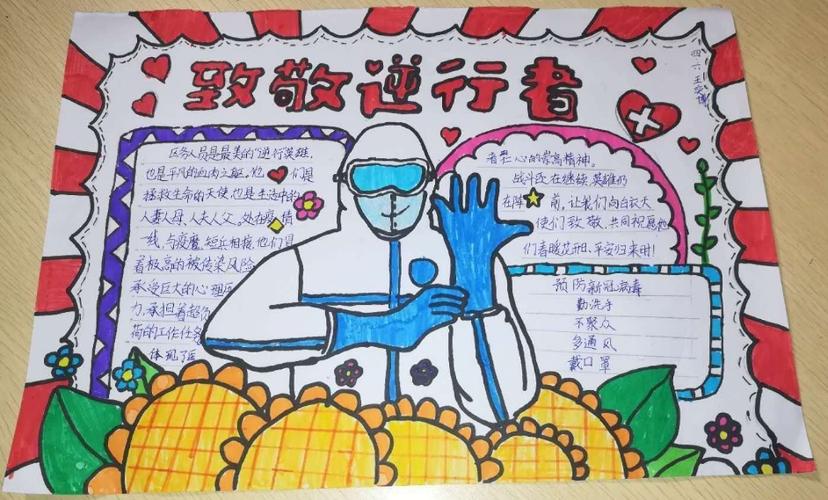 致敬逆行者
四.六
医务人员是最美的“逆行英雄,
也是平凡的血肉之躯。他们是
拯救生命的天使,也是生活中的
人妻人母、人夫人父。处在疫情
一线,与疫魔短兵相接,他们
着极高的被传染风险
承受巨大的心理压
力,承担着超负
荷的工作任务
体现了医
者仁心的崇高精神。
战斗还在继续,英雄仍
在阵前,让我们向白衣天
使们致敬,共同祝愿他
们春暖花开日、平安归来时!
预防新冠病毒
勤洗手
不聚众
多通风
戴口罩